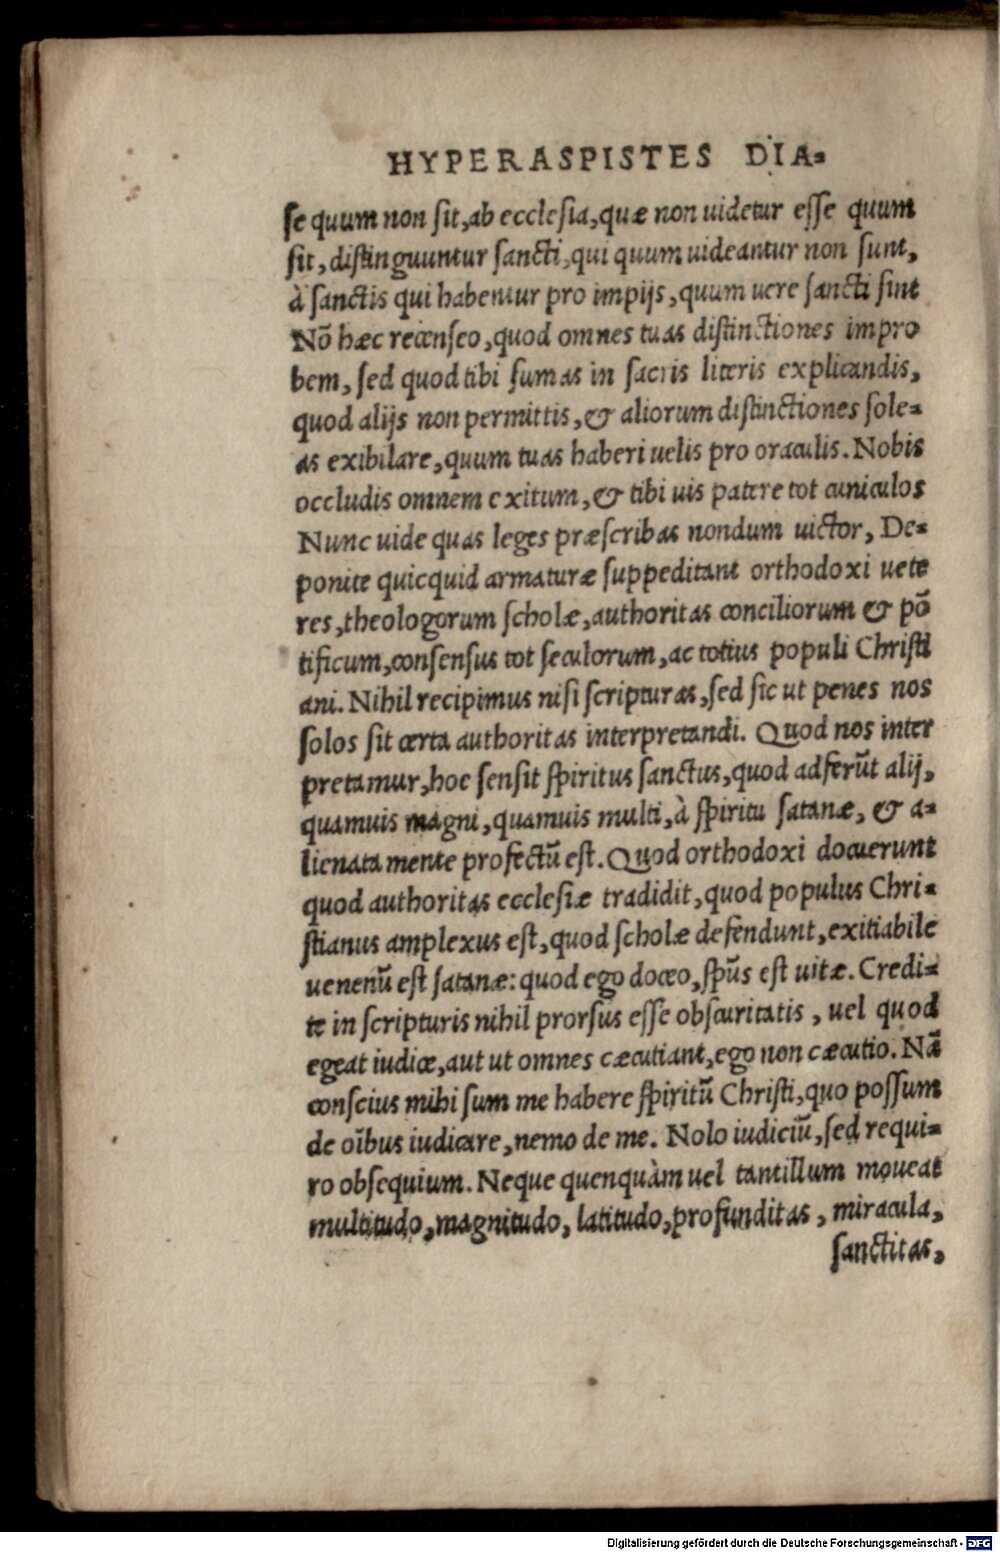 HYPERASPISTES DIA-
se quum non sit, ab ecclesia, quæ non uidetur esse quum
sit, distinguuntur sancti, qui quum uideantur non sunt,
à sanctis qui habentur pro impijs, quum uere sancti sint
Nō hæc recenseo, quod omnes tuas distinctiones impro
bem, sed quod tibi sumas in sacris literis explicandis,
quod alijs non permittis, & aliorum distinctiones sole-
as exibilare, quum tuas haberi uelis pro oraculis. Nobis
occludis omnem exitum, & tibi uis patere tot cuniculos
Nunc uide quas leges præscribas nondum uictor, De-
ponite quicquid armaturæ suppeditant orthodoxi uete
res, theologorum scholæ, authoritas conciliorum & pō
tificum, consensus tot seculorum, ac totius populi Christi
ani. Nihil recipimus nisi scripturas, sed sic ut penes nos
solos sit certa authoritas interpretandi. Quod nos inter
pretamur, hoc sensit spiritus sanctus, quod adferūt alij,
quamuis magni, quamuis multi, à spiritu satanæ, & a-
lienata mente profectū est. Quod orthodoxi docuerunt
quod authoritas ecclesiæ tradidit, quod populus Chri-
stianus amplexus est, quod scholæ defendunt, exitiabile
uenenū est satanæ: quod ego doceo, sp̄us est uitæ. Credi-
te in scripturis nihil prorsus esse obscuritatis, uel quod
egeat iudice, aut ut omnes cæcutiant, ego non cæcutio. Nā
conscius mihi sum me habere spiritū Christi, quo possum
de oībus iudicare, nemo de me. Nolo iudiciū, sed requi-
ro obsequium. Neque quenquàm uel tantillum moueat
multitudo, magnitudo, latitudo, profunditas, miracula,
sanctitas,
Digitalisierung gefördert durch die Deutsche Forschungsgemeinschaft - DFG